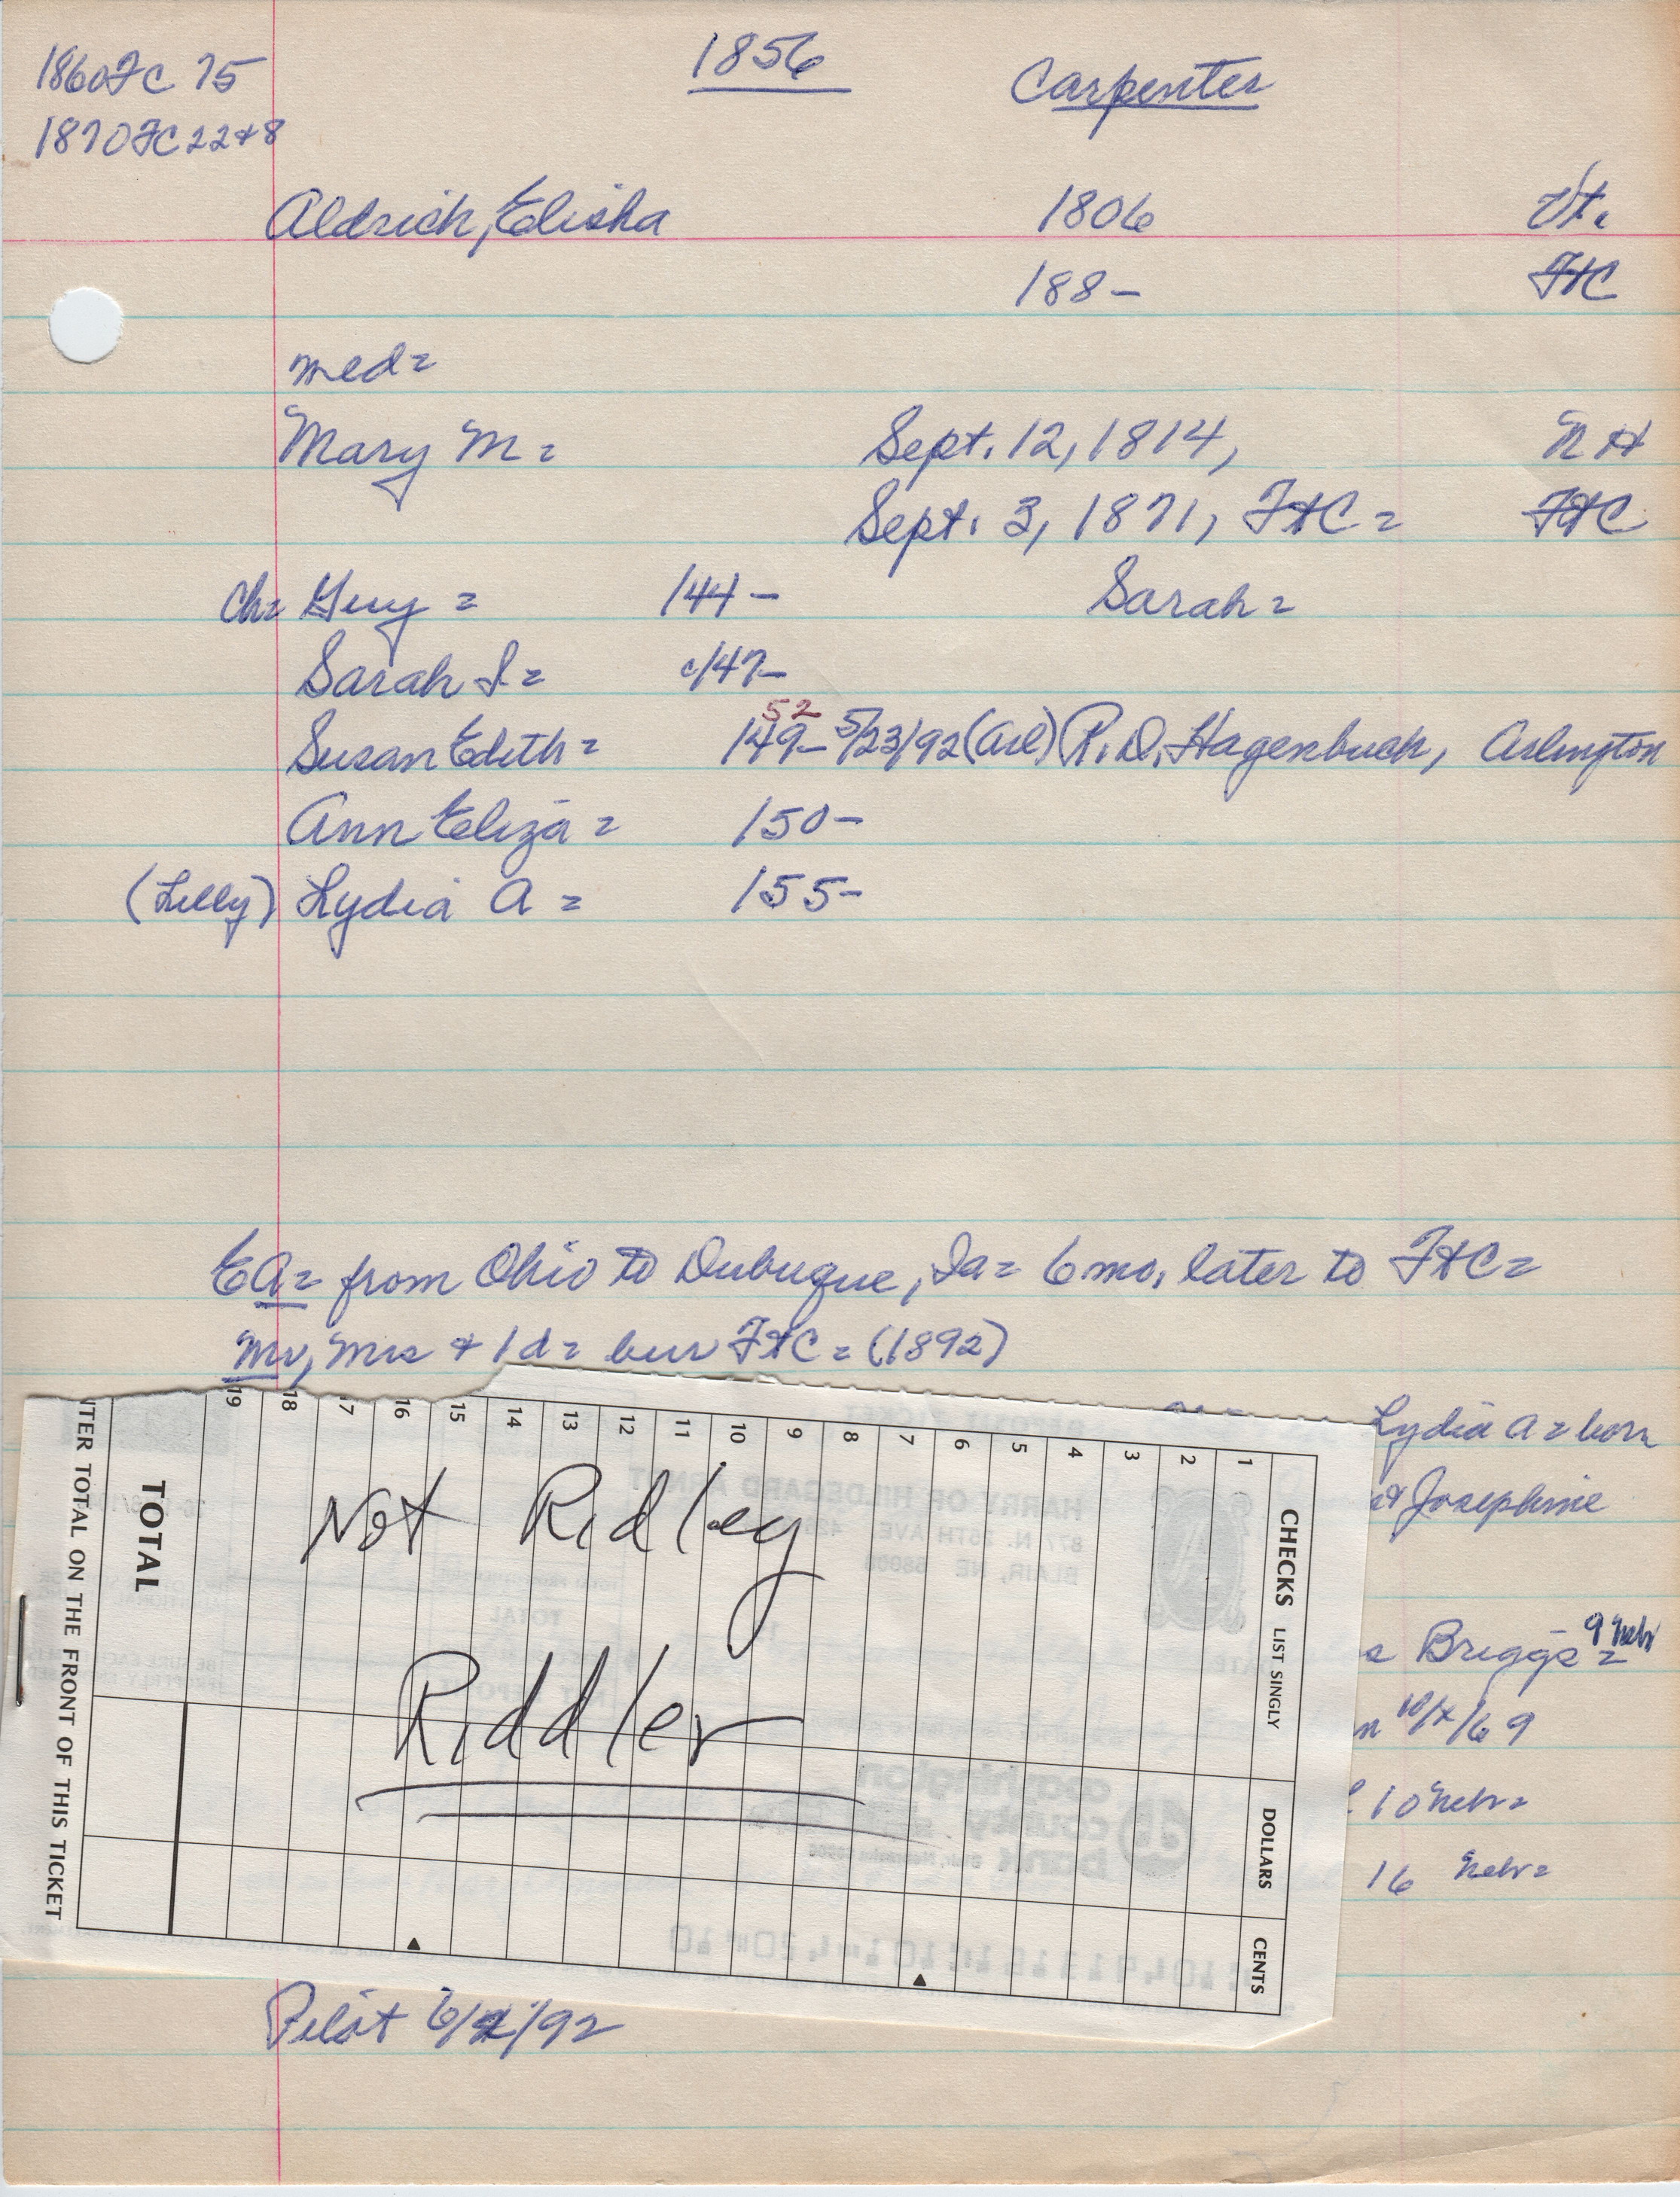 1860 FC 75
1856
Carpenter
1870 FC 22+8
Aldrich, Elisha 1806 Vt.
188- FtC
med=
Mary M= Sept. 12, 1814, NH
Sept. 3, 1871, FtC= FtC
ch= Guy= 144- Sarah=
Sarah I= c/47-
52
Susan Edith= 149- 5/23/92 (Arl) R.D. Hagenbuch, Arlington
Ann Eliza= 150-
(Lilly) Lydia A= 155-
EA= from Ohio to Dubuque, Ia= 6 mo. later to FtC=
Mr, Mrs + 1d= bur FtC= (1892)
Lydia A= born
Josephine
Briggs= 9 Nebr
10/ /69
10 Nebr=
16 Nebr=
Not Ridley
Riddler
CHECKS LIST SINGLY DOLLARS CENTS
1
2
3
4
5
6
7
8
9
10
11
12
13
14
15
16
17
18
19
TOTAL
NTER TOTAL ON THE FRONT OF THIS TICKET
HARRY OR HILDEGARD ARNDT
877 N. 26TH AVE.
BLAIR, NE 68008
TOTAL
washington
county
bank Blair, Nebraska 68008
Pilot 6/ /92